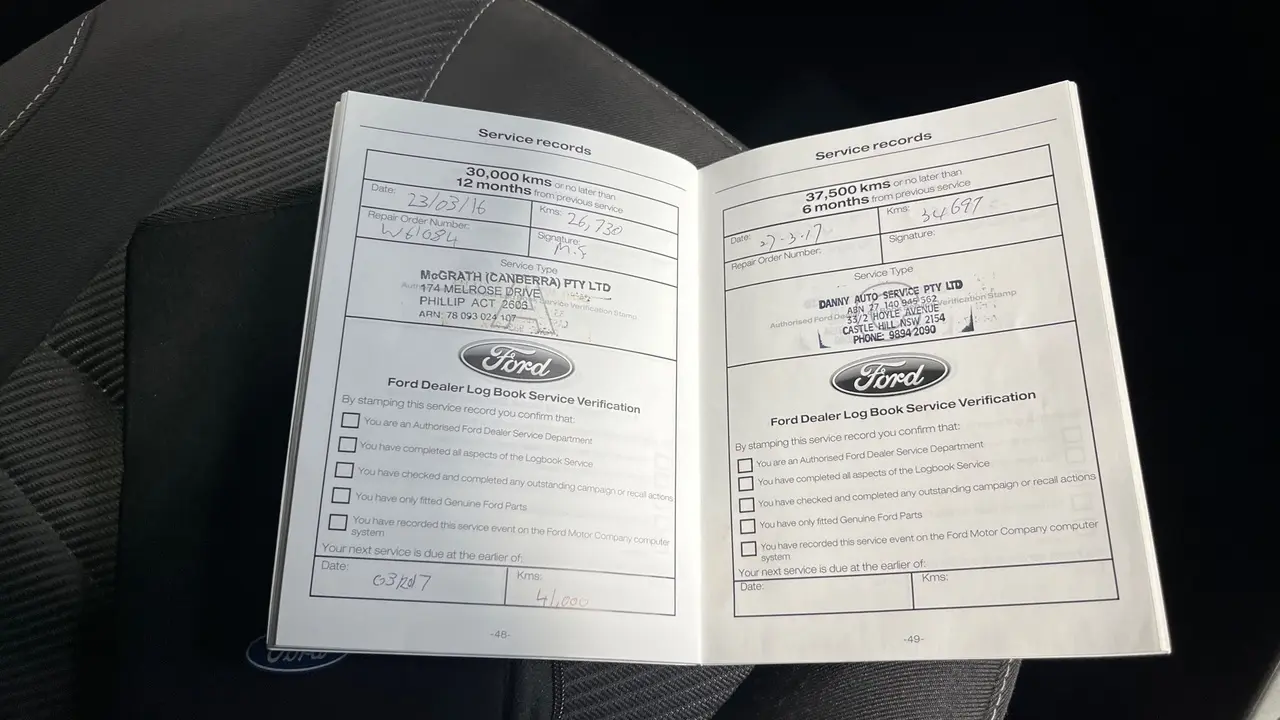 Service records
30,000 kms or no later than
12 months from previous service
Date: 23/03/16
Kms: 26,730
Repair Order Number: W61084
Signature: M.S
Service Type
McGRATH (CANBERRA) PTY LTD
174 MELROSE DRIVE
PHILLIP ACT 2603
ABN: 78 093 024 107
Service Verification Stamp
Ford
Ford Dealer Log Book Service Verification
By stamping this service record you confirm that:
You are an Authorised Ford Dealer Service Department
You have completed all aspects of the Logbook Service
You have checked and completed any outstanding campaign or recall actions
You have only fitted Genuine Ford Parts
You have recorded this service event on the Ford Motor Company computer
system
Your next service is due at the earlier of:
Date:
Kms: 41,000
-48-
Service records
37,500 kms or no later than
6 months from previous service
Date: 27-3-17
Kms: 34697
Repair Order Number:
Signature:
Service Type
DANNY AUTO SERVICE PTY LTD
ABN 27 140 945 562
Authorised Ford Verification Stamp
33/2 HOYLE AVENUE
CASTLE HILL NSW 2154
PHONE: 9894 2090
Ford
Ford Dealer Log Book Service Verification
By stamping this service record you confirm that:
You are an Authorised Ford Dealer Service Department
You have completed all aspects of the Logbook Service
You have checked and completed any outstanding campaign or recall actions
You have only fitted Genuine Ford Parts
You have recorded this service event on the Ford Motor Company computer
system
Your next service is due at the earlier of:
Date:
Kms:
-49-
Ford